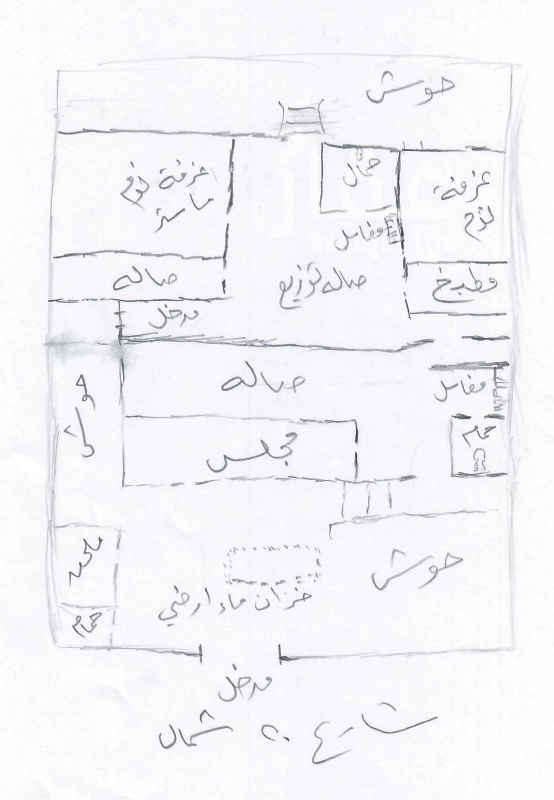 حوش
حمام
غرفة نوم
ماستر
غرفة
نوم
مغاسل
صاله
صاله توزيع
مطبخ
مدخل
صاله
مغاسل
حوش
حمام
مجلس
حوش
خزان ماء ارضي
حمام
مدخل
شارع ٢٠ شمال